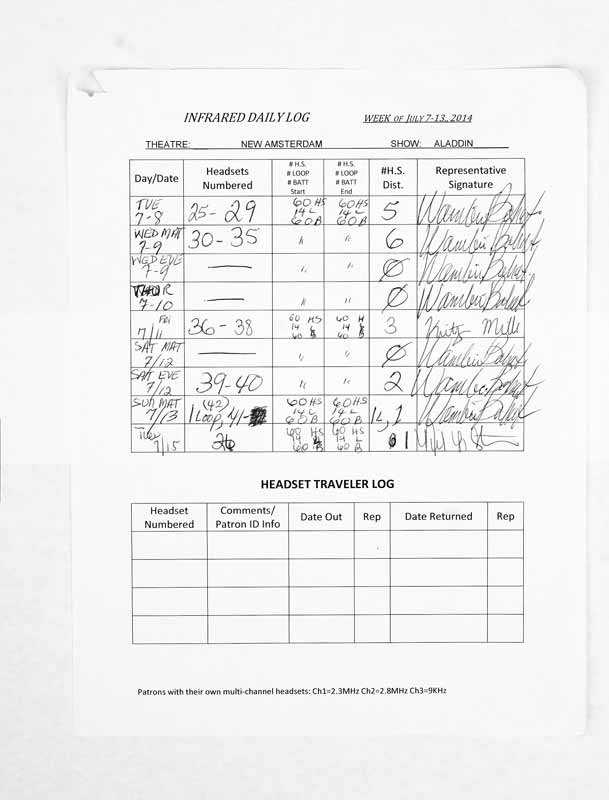 INFRARED DAILY LOG WEEK OF JULY 7-13, 2014
THEATRE: NEW AMSTERDAM SHOW: ALADDIN
Day/Date Headsets Numbered # H.S. # LOOP # BATT Start # H.S. # LOOP # BATT End #H.S. Dist. Representative Signature
TUE 7-8 25-29 60 HS 14 L 60 B 60 HS 14 L 60 B 5
WED MAT 7-9 30-35 " " 6
WED EVE 7-9 — " " Ø
THUR 7-10 — " " Ø
Fri 7/11 36-38 60 HS 14 L 60 B 60 H 14 L 60 B 3
SAT MAT 7/12 — " " Ø
SAT EVE 7/12 39-40 " " 2
SUN MAT 7/13 (42) 1 LOOP, 41- 60 HS 14 L 60 B 60 HS 14 L 60 B 1L, 1
Tue 7/15 60 HS 14 L 60 B 60 HS 14 L 60 B 1
HEADSET TRAVELER LOG
Headset Numbered Comments/ Patron ID Info Date Out Rep Date Returned Rep
Patrons with their own multi-channel headsets: Ch1=2.3MHz Ch2=2.8MHz Ch3=9KHz